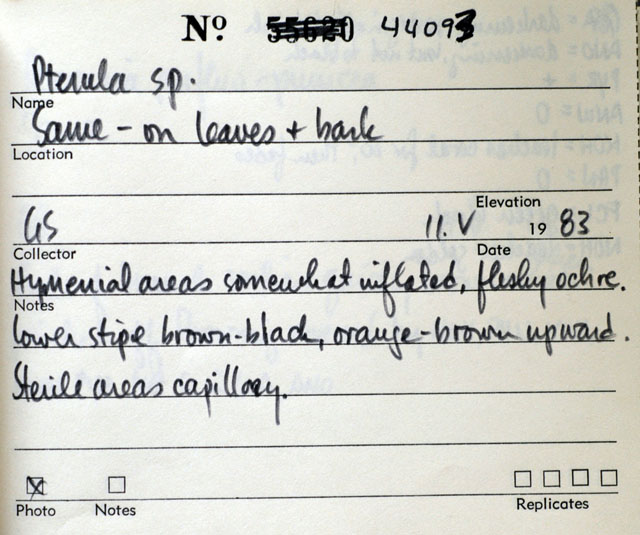 Nº 55620 44093
Pterula sp.
Name
Same - on leaves + bark
Location
Elevation
GS 11.V 1983
Collector Date
Hymenial areas somewhat inflated, fleshy ochre.
Notes
Lower stipe brown-black, orange-brown upward.
Sterile areas capillary.
Photo Notes Replicates